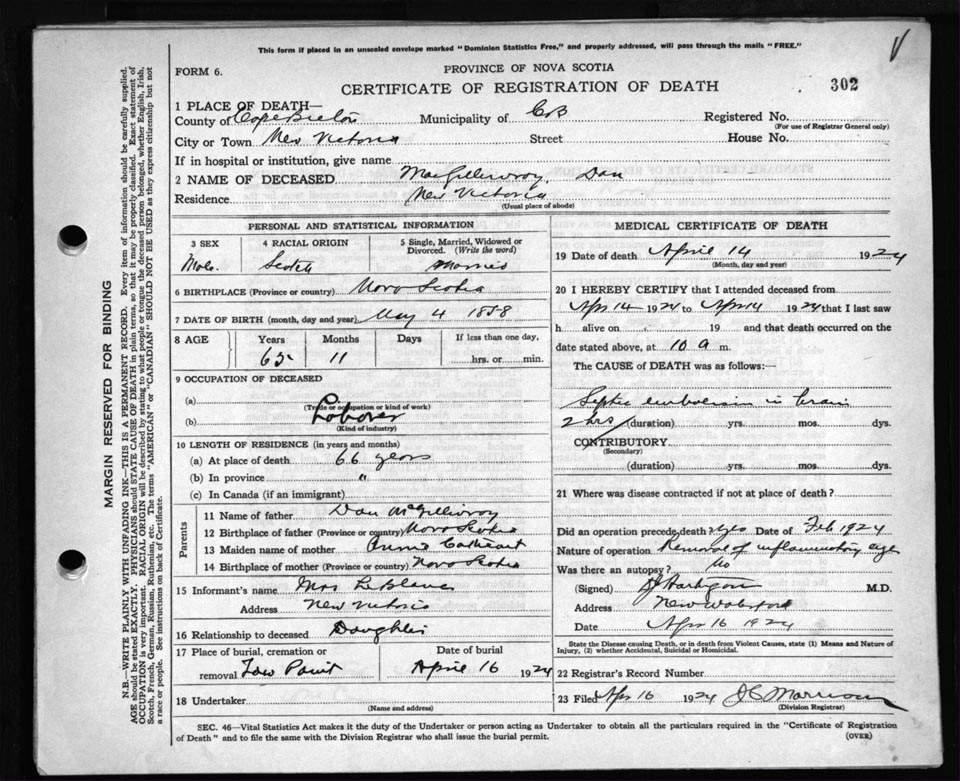 This form if placed in an unsealed envelope marked "Dominion Statistics Free," and properly addressed, will pass through the mails "FREE."
FORM 6.
PROVINCE OF NOVA SCOTIA
CERTIFICATE OF REGISTRATION OF DEATH
302
1 PLACE OF DEATH—
County of Cape Breton Municipality of CB Registered No.
(For use of Registrar General only)
City or Town New Victoria Street House No.
If in hospital or institution, give name
2 NAME OF DECEASED MacGillivray, Dan
Residence New Victoria
(Usual place of abode)
PERSONAL AND STATISTICAL INFORMATION
3 SEX
Male.
4 RACIAL ORIGIN
Scotch
5 Single, Married, Widowed or Divorced. (Write the word)
6 BIRTHPLACE (Province or country) Nova Scotia
7 DATE OF BIRTH (month, day and year) May 4 1858
8 AGE
Years Months Days If less than one day,
65 11 hrs. or min.
9 OCCUPATION OF DECEASED
(a)
(Trade or occupation or kind of work)
(b) Laborer
(Kind of industry)
10 LENGTH OF RESIDENCE (in years and months)
(a) At place of death 66 years
(b) In province "
(c) In Canada (if an immigrant)
Parents
11 Name of father Dan McGillivray
12 Birthplace of father (Province or country) Nova Scotia
13 Maiden name of mother Annie
14 Birthplace of mother (Province or country) Nova Scotia
15 Informant's name Mrs Leblanc
Address New Victoria
16 Relationship to deceased Daughter
17 Place of burial, cremation or removal Low Point
Date of burial April 16 1924
18 Undertaker
(Name and address)
MEDICAL CERTIFICATE OF DEATH
19 Date of death April 14 1924
(Month, day and year)
20 I HEREBY CERTIFY that I attended deceased from
Apr 14 1924 to Apr 14 1924 that I last saw
h alive on 19 and that death occurred on
date stated above, at 10 a m.
The CAUSE of DEATH was as follows:—
Septic embolism in brain
2 hrs (duration) yrs. mos. dys.
CONTRIBUTORY
(Secondary)
(duration) yrs. mos. dys.
21 Where was disease contracted if not at place of death?
Did an operation precede death? yes Date of Feb 1924
Nature of operation Removal of inflammatory eye
Was there an autopsy? No
(Signed) M.D.
Address New Waterford
Date Apr 16 1924
State the Disease causing Death, or in death from Violent Causes, state (1) Means and Nature of Injury, (2) whether Accidental, Suicidal or Homicidal.
22 Registrar's Record Number
23 Filed Apr 16 1924
(Division Registrar)
SEC. 46—Vital Statistics Act makes it the duty of the Undertaker or person acting as Undertaker to obtain all the particulars required in the "Certificate of Registration
of Death" and to file the same with the Division Registrar who shall issue the burial permit.
(OVER)
MARGIN RESERVED FOR BINDING
N.B.—WRITE PLAINLY WITH UNFADING INK—THIS IS A PERMANENT RECORD. Every item of information should be carefully supplied.
AGE should be stated EXACTLY. PHYSICIANS should STATE CAUSE OF DEATH in plain terms, so that it may be properly classified. Exact statement of
OCCUPATION is very important. RACIAL ORIGIN will be described by stating to what people or tongue the deceased person belonged, whether English, Irish,
Scotch, French, German, Russian, Ruthenian, etc. The terms "AMERICAN" or "CANADIAN" SHOULD NOT BE USED as they express citizenship but not
a race or people. See instructions on back of Certificate.